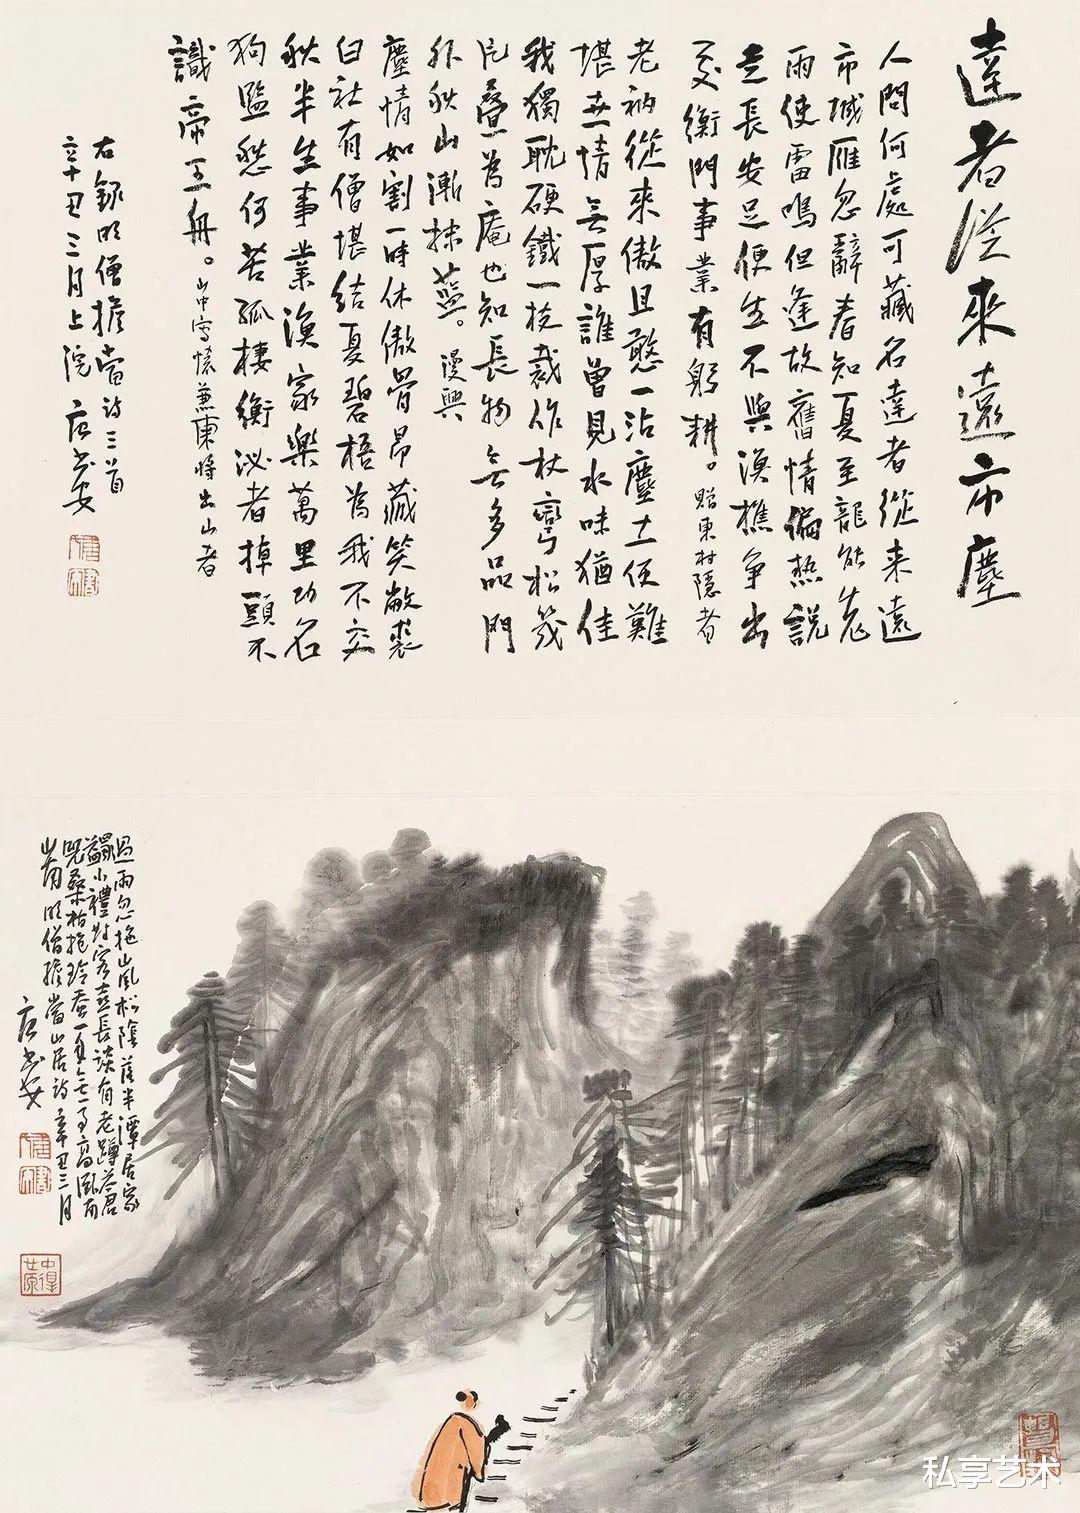 達者從來遠市塵
人間何處可藏名達者從来遠
市城雁忽辭春知夏至龍能先
雨使雷鳴但逢故舊情偏熱說
走長安足便生不與漁樵爭出
處衡門事業有躬耕。贈東村隱者
老衲從来傲且憨一沾塵土便難
堪世情無厚誰曾見水味猶佳
我獨耽硬鐵一枝裁作杖彎松幾
尺疊為庵也知長物無多品門
外秋山漸抹藍。漫興
塵情如割一時休傲骨昂藏笑敝裘
白社有僧堪結夏碧梧為我不交
秋半生事業漁家樂萬里功名
狗監愁何苦孤棲衡泌者掉頭不
識帝王舟。山中寫懷兼柬將出山者
右錄明僧擔當詩三首
辛丑三月上院 唐書安
過雨忽拖山風松陰落半潭居家
蠲小禮對客喜長談有老蹲茶臼
呪桑枯抱玲蚕一身無一事高風両
山青 明僧擔當山居詩 辛丑三月
唐書安
私享艺术